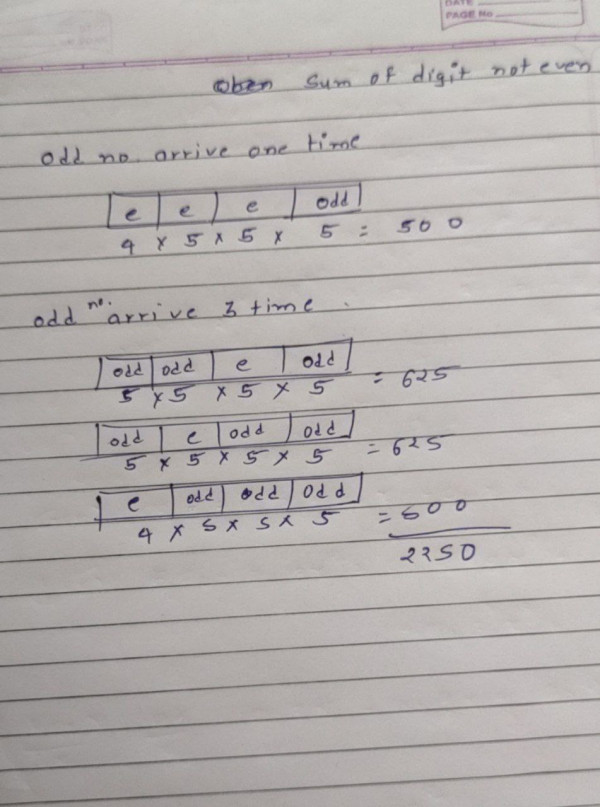 DATE
PAGE No
sum of digit not even
odd no. arrive one time
e e e odd
4 x 5 x 5 x 5 = 500
odd no. arrive 3 time.
odd odd e odd
5 x 5 x 5 x 5 = 625
odd e odd odd
5 x 5 x 5 x 5 = 625
e odd odd odd
4 x 5 x 5 x 5 = 500
2250